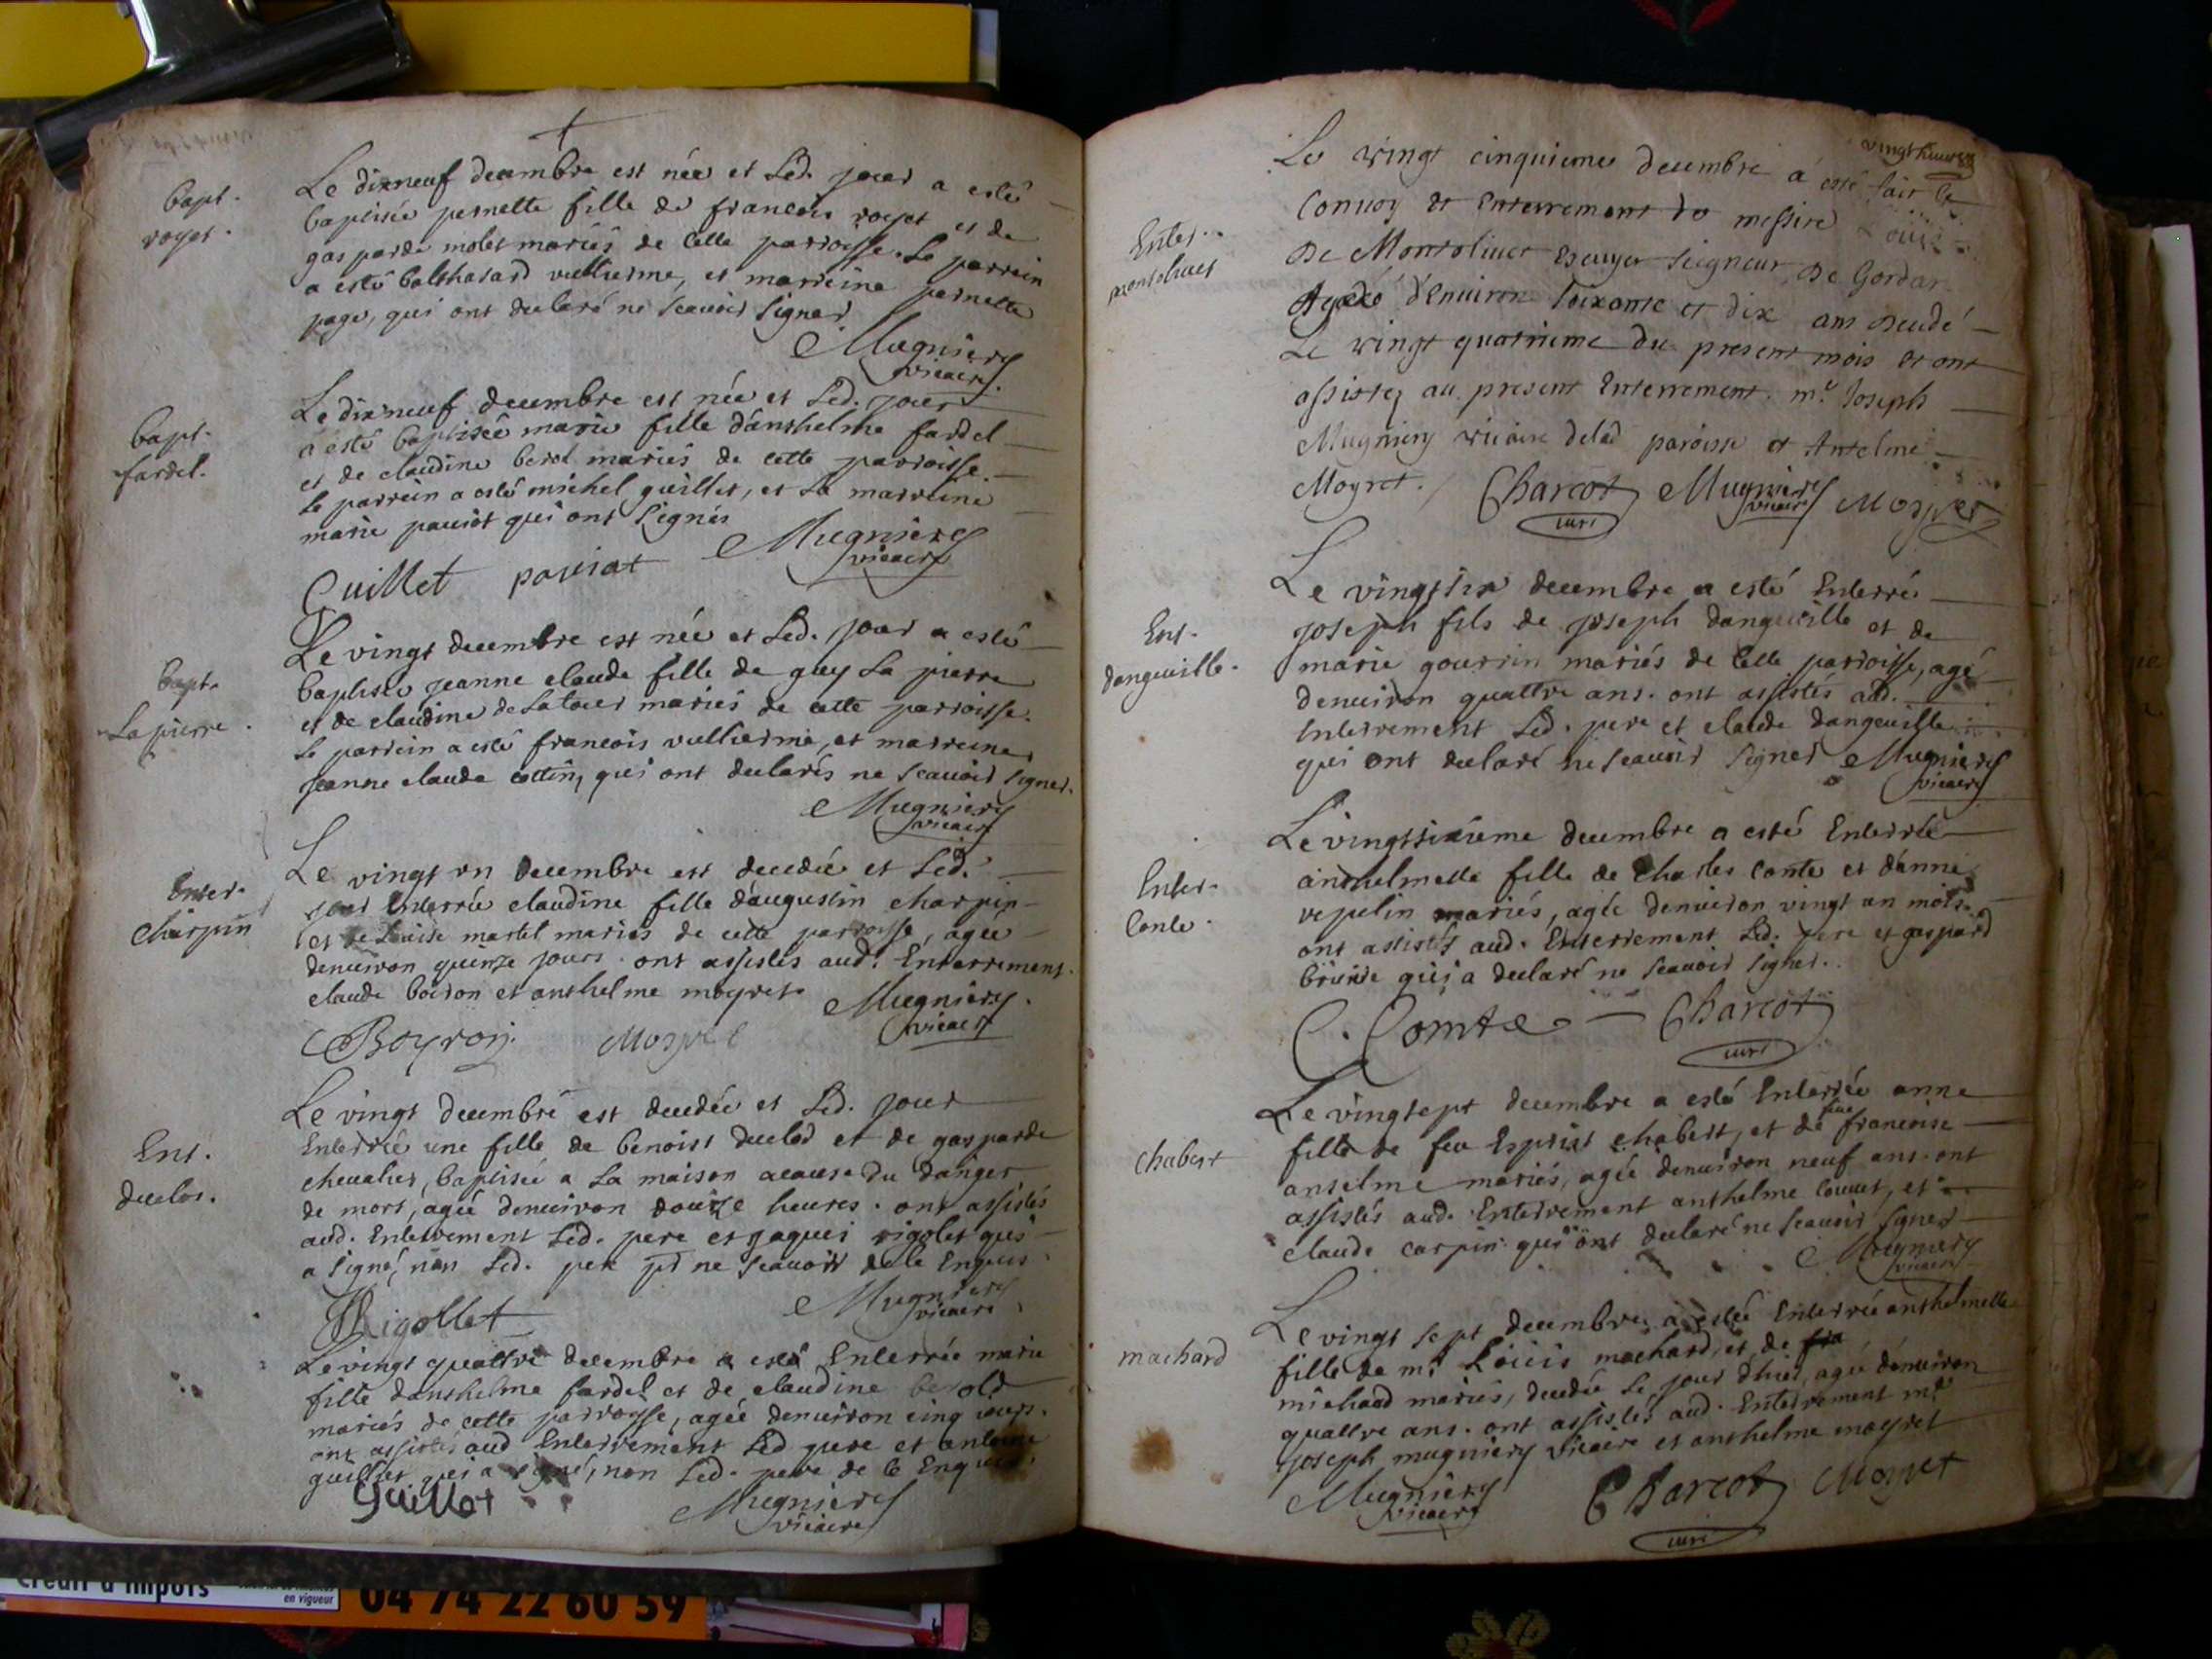 Bapt.
royet.
Le dixneuf decembre est née et Led. jour a esté
baptisée pernette fille de francois royet et de
gasparde molet mariés de cette parroisse. Le parrein
a esté balthasard vuillierme, et marreine pernette
page, qui ont declaré ne scauoir signer
Mugniery
vicaire.
Bapt.
fardel.
Le dixneuf decembre est née et Led. jour
a esté baptisée marie fille d'anthelme fardel
et de claudine berod mariés de cette parroisse.
le parrein a esté michel guillet, et La marreine
marie pauiot qui ont signés
Mugniery
vicaire
Guillet pauiot
Bapt.
Lapierre.
Le vingt decembre est née et Led. jour a esté
baptisée jeanne claude fille de guy La pierre
et de claudine deLatour mariés de cette parroisse.
le parrein a esté francois vullierme, et marreine
jeanne claude cottin, qui ont declarés ne scauoir signer.
Mugniery
vicaire
Enter.
Charpin
Le vingt un decembre est decedée et Led.
jour Enterrée claudine fille d'augustin charpin
et de Louise martel mariés de cette parroisse, agée
denuiron quinze jours. ont assistés aud. Enterrement.
claude boiron et anthelme moyret.
Mugniery.
vicaire
Boyron Moyret
Ent.
duclos.
Le vingt decembre est decedée et Led. jour
Enterrée une fille de benoist duclod et de gasparde
cheualier, baptisée a La maison acause du danger
de mort, agée denuiron douize heures. ont assistés
aud. Enterrement Led. pere et jaques rigolet qui
a signé, non Led. pere pr ne scauoir de le Enquis
Mugniery
vicaire
Rigollet
Le vingt quattre decembre a esté Enterrée marie
fille d'anthelme fardel et de claudine berold
mariés de cette parroysse, agée denuiron cinq jours.
ont assistés aud Enterrement Led pere et antoine
guillet qui a signé, non Led. pere de le Enquis.
Guillot
Mugniery
vicaire
vingt
Enter.
montoliuet
Le vingt cinquieme decembre a esté fait le
Conuoy et Enterrement de messire Loüis
De Montoliuet Escuyer Seigneur De Gordan
Agé d'Enuiron soixante et dix ans decedé
Le vingt quatrieme du present mois et ont
assistez au present Enterrement. mr. Joseph
Mugniery vicaire delad paroisse et Antelme
Moyret. Charcot Mugniery Moyret
curé vicaire
Ent.
dangeuille.
Le vingtsix decembre a esté Enterré
joseph fils de joseph dangeuille et de
marie gourrin mariés de cette parroisse, agé
denuiron quattre ans. ont assistés aud.
Enterrement Led. pere et claude dangeuille
qui ont declaré ne scauoir signer Mugniery
vicaire
Enter.
Conte.
Le vingtsixieme decembre a esté Enterrée
anthelmette fille de Charles Conte et d'anne
vepulin mariés, agée denuiron vingt un mois.
ont assistés aud. Enterrement Led. pere et gaspard
brunde qui a declaré ne scauoir signer.
C. Comte Charcot
curé
Chabert
Le vingtsept decembre a esté Enterrée anne
fille de feu Esprit chabert, et de feue francoise
anselme mariés, agée denuiron neuf ans. ont
assistés aud. Enterrement anthelme Couuet, et
claude carpin qui ont declaré ne scauoir signer
Mugniery
vicaire
machard
Le vingt sept decembre a estée Enterrée anthelmette
fille de mr. Loüis machard, et de fra
michaud mariés, decedée le jour d'hier, agée denuiron
quattre ans. ont assistés aud. Enterrement mr.
joseph mugniery vicaire et anthelme moyret
Mugniery Charcot Moyret
vicaire curé
Crédit d'impôts
en vigueur
04 74 22 60 59